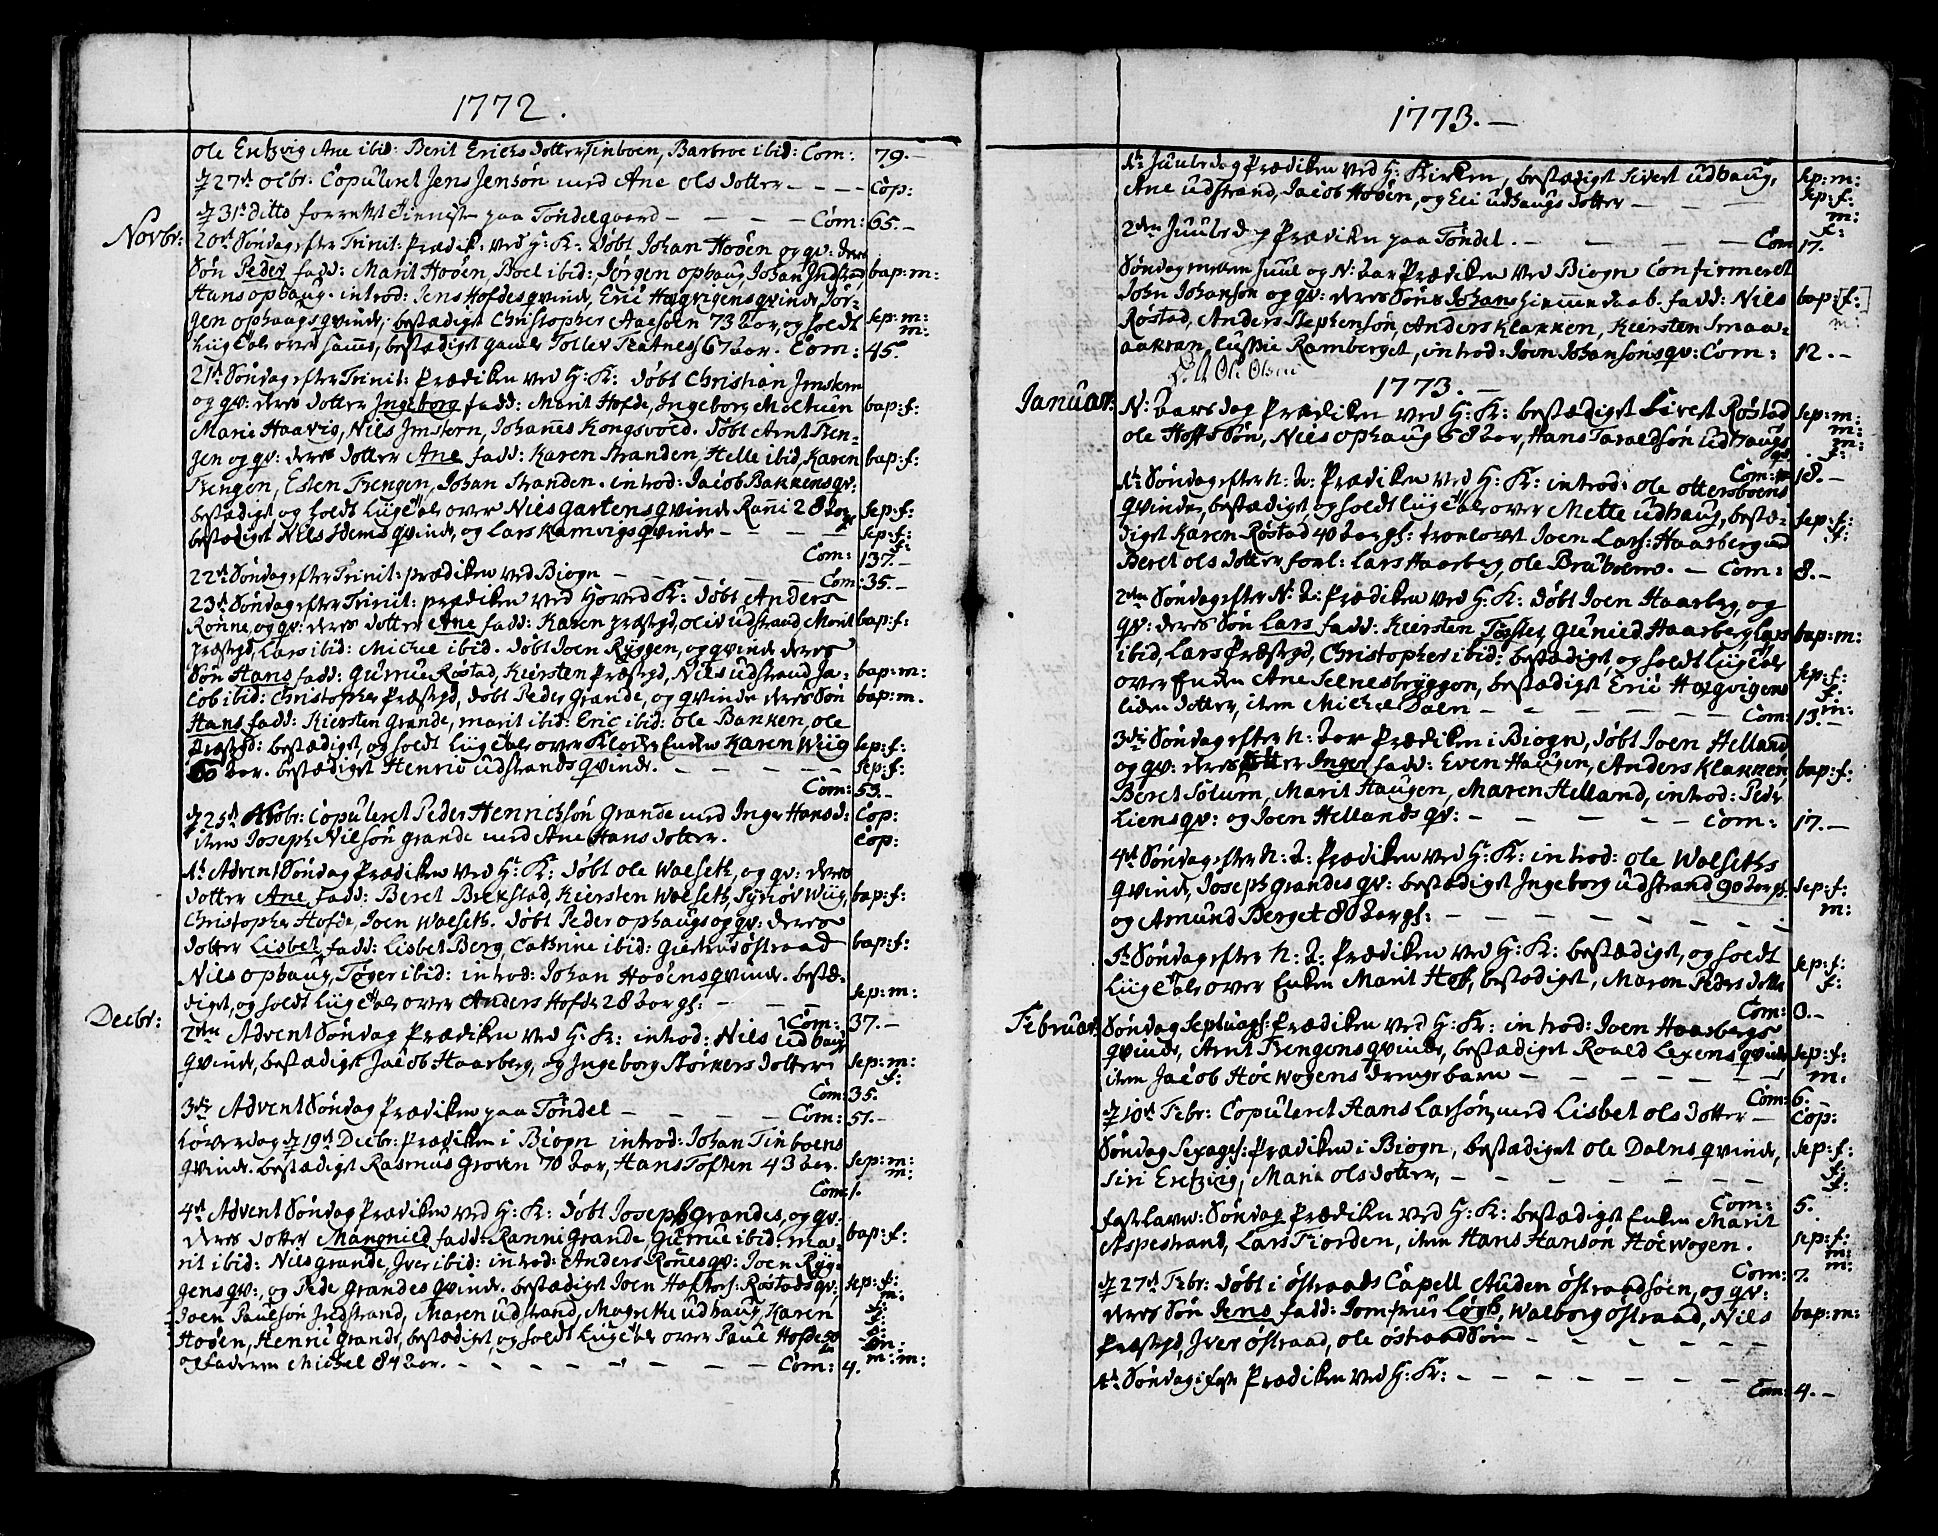 1772.
Ole Entzvig Ane ibid: Berit Erichs dotter Tinboen, Barbroe ibid: Com: 79.-
d 27de Octbr: Copuleret Jens Jensøn med Ane Ols dotter - - - - Cop:
d 31te ditto forrettet Tieneste paa Tøndelgaard - - - - Com: 65.-
Novbr: 20de Søndag efter Trinit: Prædik: ved H: K: døbt Johan Hoøen og qv: deres
Søn Peder fadd: Marit Hoøen, Boel ibid: Jørgen ophaug, Johan Indstrand, bap: m:
Hans ophaug. introd: Jens Hofdes qvinde, Eric Høgvigens qvinde, Jør-
gen ophaugs qvinde, bestædiget Christopher Aaesøen 73 Aar, og holdt sep: m:
m:
Liig Tale over samme, bestædiget gamle Tollev Tratnes 67 aar. Com: 45.
21de Søndag efter Trinit: Prædiken ved H: K: døbt Christian Jmstern
og qv: deres dotter Ingeborg fadd: Marit Hofde, Ingeborg Meltuen bap: f:
Marie Haavig, Nils Jmstern, Johannes Kongsvold. døbt Arnt Tren-
gen og qv: deres dotter Ane fadd: Karen Stranden, Helle ibid, Karen bap: f:
Trengen, Esten Trengen, Johan Stranden. introd: Jacob Bakkens qv:
bestædiget og holdt Liig Tale over Niels Gartens qvinde Rañi 28 aar sep: f:
bestædiget Nils Idems qvinde, og Lars Kamvigs qvinde - - - - sep: f:
f:
Com: 137.-
22de Søndag efter Trinit: prædiken ved Biogn - - - - - Com: 35.-
23de Søndag efter Trinit: prædiken ved Hoved K: døbt Anders
Rønne, og qv: deres dotter Ane fadd: Karen præstgd, Oliv udstrand, Marit bap: f:
præstgd, Lars ibid: Michel ibid. døbt Joen Ryggen, og qvinde deres
Søn Hans fadd: Gurrue Røstad, Kiersten Præstgd, Nils udstrand Ja- bap: m:
cob ibid: Christopher Præstgd, døbt Peder Grande, og qvinde deres Søn bap: m.
Hans fadd: Kiersten Grande, marit ibid: Eric ibid: Ole Bakken, ole
Præstgd: bestædiget og holdt Liig Tale over Klocker Enken Karen Wiig sep: f:
60 aar. bestædiget Henric udstrands qvinde. - - - - - sep: f:
Com: 53.-
d 25de Novbr: Copuleret Peder Henrichsøn Grande med Inger Hansd: Cop:
item Joseph Nilsøn grande med Ane Hans dotter. Cop:
1te Advent Søndag Prædiken ved H: K: døbt ole Walseth, og qv: deres
dotter Ane fadd: Beret Brekstad, Kiersten Walseth, Syrløv Wiig, bap: f:
Christopher Hofde, Joen Walseth. døbt Peder ophaugs og qv: deres
dotter Lisbet, fadd: Lisbet Berg, Cathrine ibid: Giertrud østraad bap: f:
Niels ophaug, Tøger ibid: introd: Johan Hoøens qvinde. bestæ-
diget, og holdt Liig Tale over Anders Hofde 28 aar gl: - - - sep: m:
Com: 37.-
Decbr: 2den Advent Søndag Prædiken ved H: K: introd: Nils udhaug
qvinde, bestædiget Jacob Haarberg, og Ingeborg Størkers dotter sep: m:
f:
Com: 35.
3die Advent Søndag Prædiken paa Tøndel - - - - - Com: 51.-
Løverdag d 19de Decbr: Prædiken i Biogn introd: Johan Tinboens
qvinde. bestædiget Rasmus Groven 70 aar, Hans Toften 43 aar. sep: m:
m:
Com: 1.
4de Advent Søndag Prædiken ved H: K: døbt Joseph Grandes, og qv:
deres dotter Mangnild fadd: Ranni Grande, Gurrue ibid: ma- bap: f:
rit ibid: Nils Grande, Iver ibid: introd: Anders Rønes qv: Joen Ryg-
gens qv:, og Peder Grandes qvinde. bestædiget Joen Røstads qv: sep: f:
m:
Joen Paulsøn Indstrand, Maren udstrand, Magrethe udhaug, Karen f:
f:
Hoøen, Henric Grande, bestædiget og holdt Liig Tale over Paul Hofde 50
og faderen Michel 84 aar. - - - - - - - - Com: 4. m: m:

1773.-
1te Juuledag Prædiken ved H: Kirken, bestædiget Sivert udhaug, sep: m:
Ane udstrand, Jacob Hoøen, og Eli udhaugs dotter - - - sep: f:
m:
f:
2den Juuledag Prædiken paa Tøndel. - - - - - Com 17.
Søndag mellem Juul og N: aar Prædiken ved Biogn Confirmeret
John Johansøn og qv: deres Søns Johans hiemme daab. fadd: Niels bap: [f:]
m:
Røstad, Anders Stephensøn, Anders Klakken, Kiersten Smaa-
aakran, Lussie Ramberget, introd: Joen Johansøns qv: Com: 12.-
Ole Olsen
1773.-
Januar: N: Aars dag Prædiken ved H: K: bestædiget Sivert Røstad sep: m:
m:
ole Hoffs Søn, Niels ophaug 58 aar, Hans Taraldsøn udhaugs m:
qv f:
Com: 18.-
1te Søndag efter N: A: Prædiken ved H: K: introd: ole ottersboens
qvinde, bestædiget og holdt Liig Tale over Mette udhaug, bestæ- sep: f:
diget Karen Røstad 40 aar gl: trolovet Joen Lars: Haarberg med f:
Beret ols dotter forl: Lars Haarberg, ole - Com: 8.-
2den Søndag efter N: A: Prædiken ved H: K: døbt Joen Haarberg, og
qv: deres Søn Lars fadd: Kiersten Tofter, Gunild Haarberg, Lars bap: m:
ibid, Lars Præstgd, Christopher ibid: bestædiget, og holdt Liig Tale
over Enken Ane Selnesbryggen, bestædiget Eric Høgvigens sep: f:
f:
liden dotter, item Michel Dalen - - - - - - m:
Com: 13.-
3die Søndag efter N: Aar Prædiken i Biogn, døbt Joen Helland
og qv: deres dotter Inger fadd: Even Haugen, Anders Klakken, bap: f:
Beret Solum, Marit Haugen, Maren Helland, introd: Peder
Liens qv: og Joen Hellands qv: - - - - - Com: 17.-
4de Søndag efter N: A: Prædiken ved H: K: introd: ole Walseths
qvinde, Joseph grandes qv: bestædiget Ingeborg udstrand 90 aar gl: sep: f:
og Amund Berget 80 aar gl: - - - - - - - m:
5te Søndag efter N: A: Prædiken ved H: K: bestædiget, og holdt sep: f:
Liig Tale over Enken Marit Hof, bestædiget, Maren Peders dotter f:
Com: 3.-
Februar: Søndag Septuages: Prædiken ved H: K: introd: Joen Haarbergs
qvinde, Arnt Trengens qvinde, bestædiget Roald Lexens qvinde sep: f:
item Jacob Hoewogens drengebarn - - - - - m:
Com: 6.-
d 10de Febr: Copuleret Hans Larsøn med Lisbet ols dotter - Cop:
Søndag Sexages: Prædiken i Biogn, bestædiget ole Dalens qvinde, sep: f:
Siri Eretzvig, Maria ols dotter, - - - - - - f:
f:
Com: 5.
fastelavns: Søndag Prædiken ved H: K: bestædiget Enken Marit
Aspestrand, Lars Fiorden, item Hans Hansøn Hoewogen. sep: f:
m:
m:
Com: 7.
d 27de Febr: døbt i østraads Capell Auden østraadsøen, og qv:
deres Søn Jens fadd: Jomfrue Løgh, Walborg østraad, Niels bap: m:
Præstgd, Iver østraad, ole østraadsøen - - - -
1te Søndag i faste Prædiken ved H: K: - - - - - -
Com: 4.-